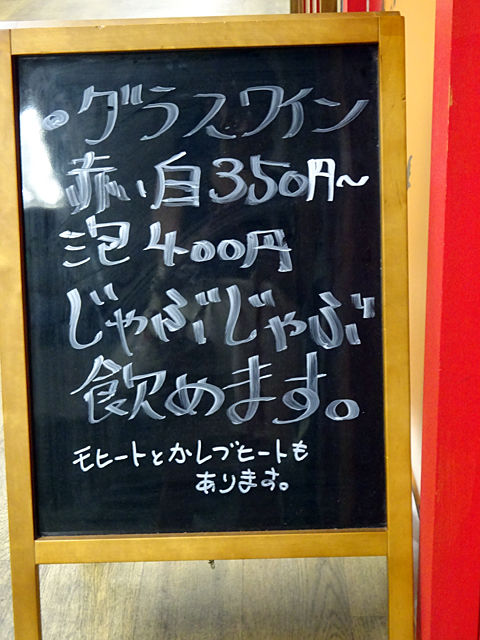 ・グラスワイン
赤い白350円～
泡400円
じゃぶじゃぶ
飲めます。
モヒートとかレブヒートも
あります。